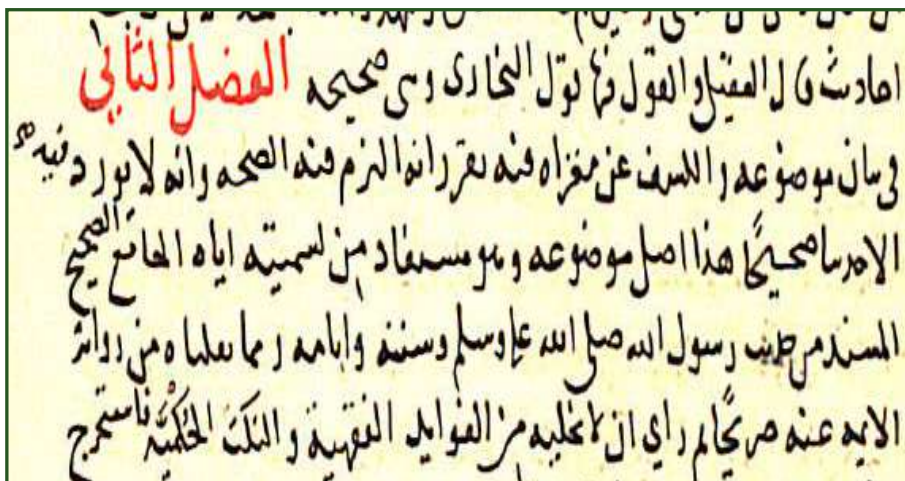 احاديث قال العقيلي والقول فيها قول البخاري وهي صحيحه الفصل الثاني
في بيان موضوعه والكشف عن مغزاه فيه تقرر انه التزم فيه الصحه وانه لا يورد فيه
الا حديثا صحيحًا هذا اصل موضوعه وهو مستفاد من تسميته اياه الجامع الصحيح
المسند من حديث رسول الله صلى الله عليه وسلم وسننه وايامه ومما نقلناه من رواية
الايمه عنه صريحًا ثم راي ان لا يخليه من الفوايد الفقهية والنكت الحكميّه فاستخرج